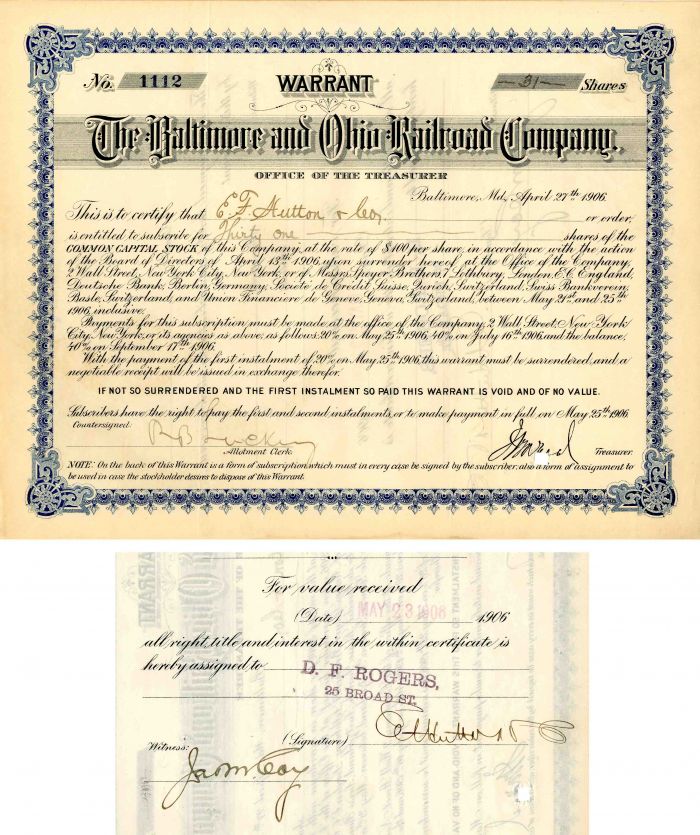 No. 1112 WARRANT —31— Shares
The Baltimore and Ohio Railroad Company.
OFFICE OF THE TREASURER
Baltimore, Md., April 27th 1906.
This is to certify that E. F. Hutton & Co. or order,
is entitled to subscribe for Thirty one shares of the
COMMON CAPITAL STOCK of this Company, at the rate of $100 per share, in accordance with the action
of the Board of Directors of April 13th 1906, upon surrender hereof at the Office of the Company,
2 Wall Street, New York City, New York, or of Messrs Speyer Brothers, 7 Lothbury, London, E.C. England,
Deutsche Bank, Berlin, Germany, Societe de Credit Suisse, Zurich, Switzerland, Swiss Bankverein,
Basle, Switzerland, and Union Financiere de Geneve, Geneva, Switzerland, between May 21st and 25th
1906, inclusive.
Payments for this subscription must be made at the office of the Company, 2 Wall Street, New York
City, New York, or its agencies as above, as follows: 20% on May 25th 1906, 40% on July 16th 1906, and the balance,
40% on September 17th 1906.
With the payment of the first instalment of 20% on May 25th 1906, this warrant must be surrendered, and a
negotiable receipt will be issued in exchange therefor.
IF NOT SO SURRENDERED AND THE FIRST INSTALMENT SO PAID THIS WARRANT IS VOID AND OF NO VALUE.
Subscribers have the right to pay the first and second instalments, or to make payment in full, on May 25th 1906.
Countersigned:
Allotment Clerk. Treasurer.
NOTE: On the back of this Warrant is a form of subscription which must in every case be signed by the subscriber, also a form of assignment to
be used in case the stockholder desires to dispose of this Warrant.
For value received
(Date) MAY 23 1906 1906
all right, title and interest in the within certificate is
hereby assigned to D. F. ROGERS,
25 BROAD ST.
(Signature) E F Hutton & Co
Witness:
Jas McCoy